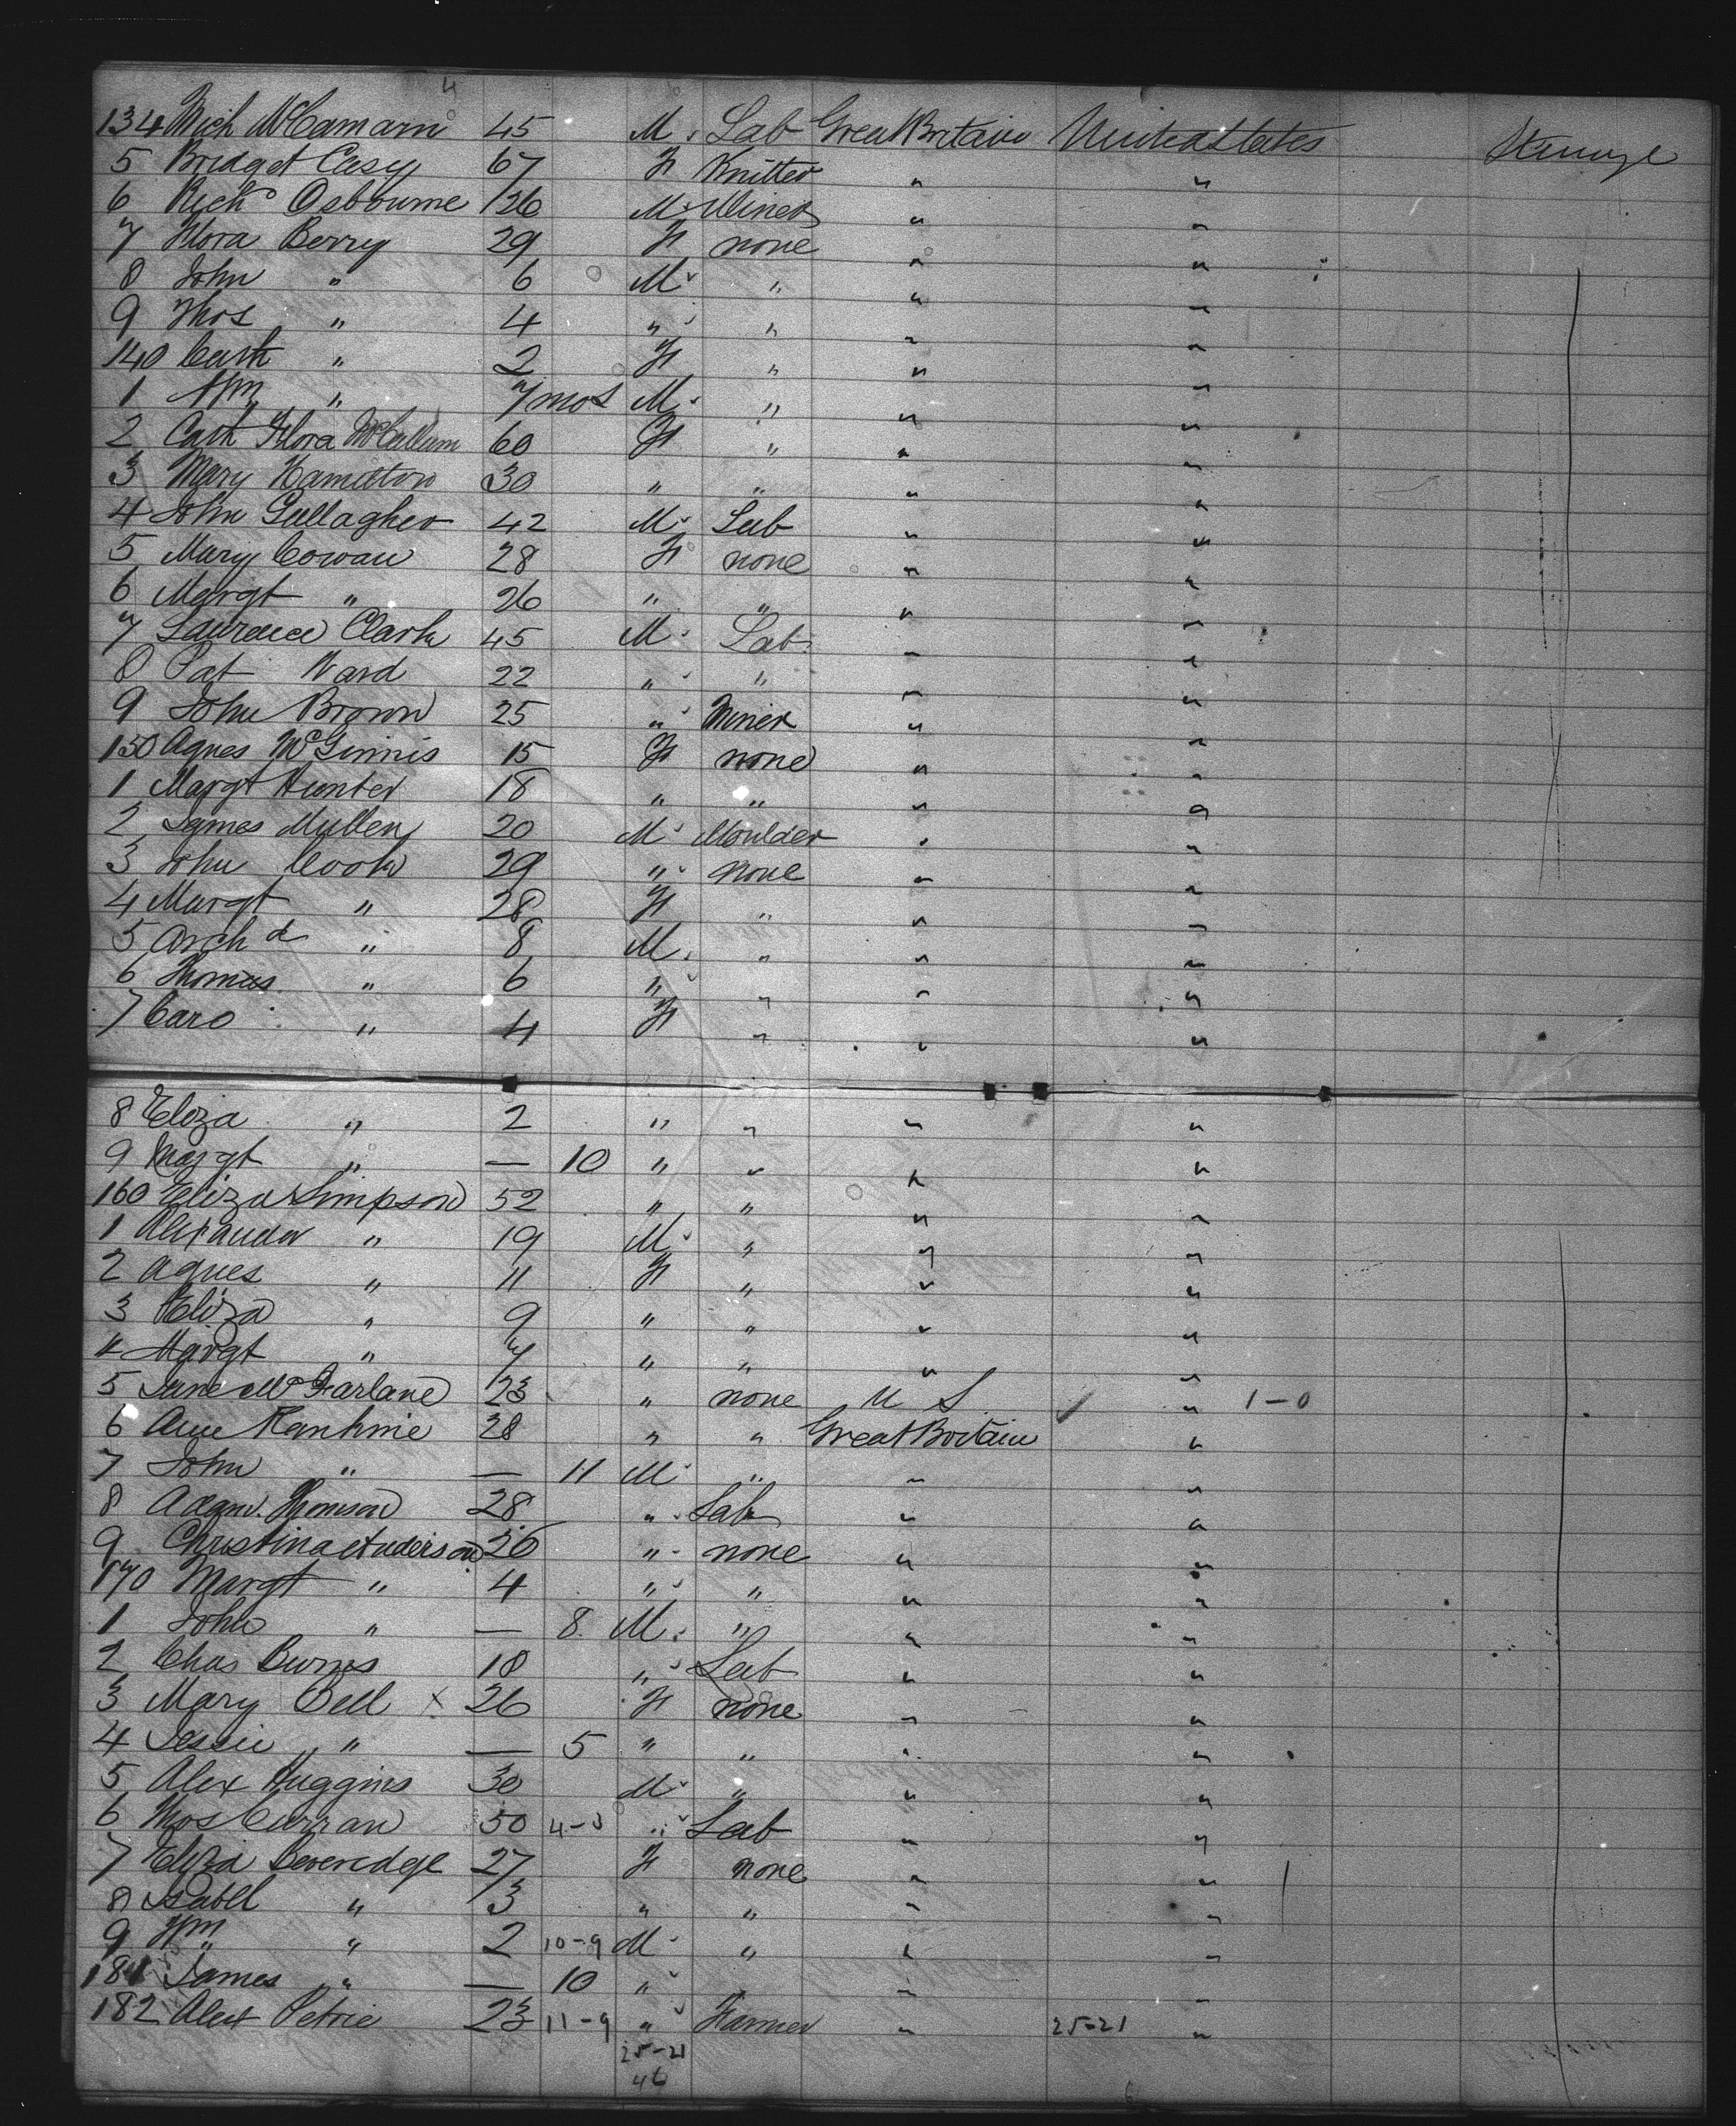 134 Mich McCamarn 45 M. Lab Great Britain United States Steerage
5 Bridget Casy 67 F Knitter " "
6 Richd Osbourne 26 M Miner " "
7 Flora Berry 29 F none " "
8 John " 6 M " " "
9 Thos " 4 " " " "
140 Cath " 2 F " " "
1 Wm " 7 mos M " " "
2 Cath Flora McCallum 60 F " " "
3 Mary Hamilton 30 " " " "
4 John Gallagher 42 M Lab " "
5 Mary Cowan 28 F none " "
6 Margt " 26 " " " "
7 Laurence Clark 45 M Lab " "
8 Pat Ward 22 " " " "
9 John Brown 25 " Miner " "
150 Agnes McGinnis 15 F none " "
1 Margt Hunter 18 " " " "
2 James Mullen 20 M Moulder " "
3 John Cook 29 " none " "
4 Margt " 28 F " " "
5 Archd " 8 M. " " "
6 Thomas " 6 " " " "
7 Caro " 4 F " " "
8 Eliza " 2 " " " "
9 Margt " — 10 " " " "
160 Eliza Simpson 52 " " " "
1 Alexander " 19 M " " "
2 Agnes " 11 F " " "
3 Eliza " 9 " " " "
4 Margt " 7 " " " "
5 Jane McFarlane 23 " none U S " 1-0
6 Ann 28 " " Great Britain "
7 John " — 11 M " " "
8 Adam Thomson 28 " Lab " "
9 Christina Anderson 26 " none " "
170 Margt " 4 " " " "
1 John " — 8 M. " " "
2 Chas Burns 18 " Lab " "
3 Mary Bell x 26 F none " "
4 Jessie " — 5 " " " "
5 Alex Huggins 30 M " " "
6 Thos Curran 50 " Lab " "
7 Eliza Beveredge 27 F none " "
8 Isabel " 3 " " " "
9 Wm " 2 10-9 M " " "
181 James " — 10 " " "
182 Alex Petrie 23 11-9 " Farmer " 25-21 "
25-21
46